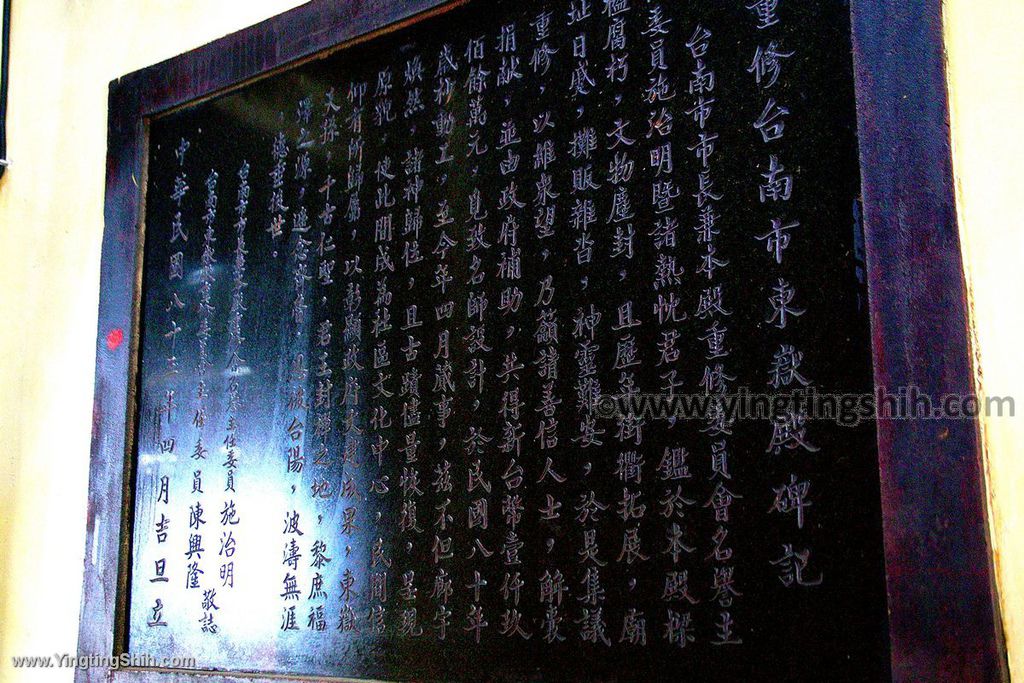 重修台南市東嶽殿碑記
台南市市長兼本殿重修委員會名譽主
委員施治明暨諸熱忱君子，鑑於本殿樑
楹腐朽，文物塵封，且歷年街衢拓展，廟
址日蹙，攤販雜沓，神靈難安，於是集議
重修，以維眾望，乃籲請善信人士，解囊
捐献，並由政府補助，共得新台幣壹仟玖
佰餘萬元，見致名師設計，於民國八十年
歲杪動工，至今年四月蕆事，茲不但廊宇
煥然，諸神歸位，且古蹟儘量恢復，呈現
原貌，使此間成為社區文化中心，民間信
仰有所歸屬，以彰顯政府文建成果，東嶽
千古仁聖，君王封禪之地，黎庶福
台陽，波濤無涯
垂後世。
主任委員施治明
主任委員陳興隆
敬誌
中華民國八十三年四月吉旦立
©www.yingtingshih.com
www.YingtingShih.com